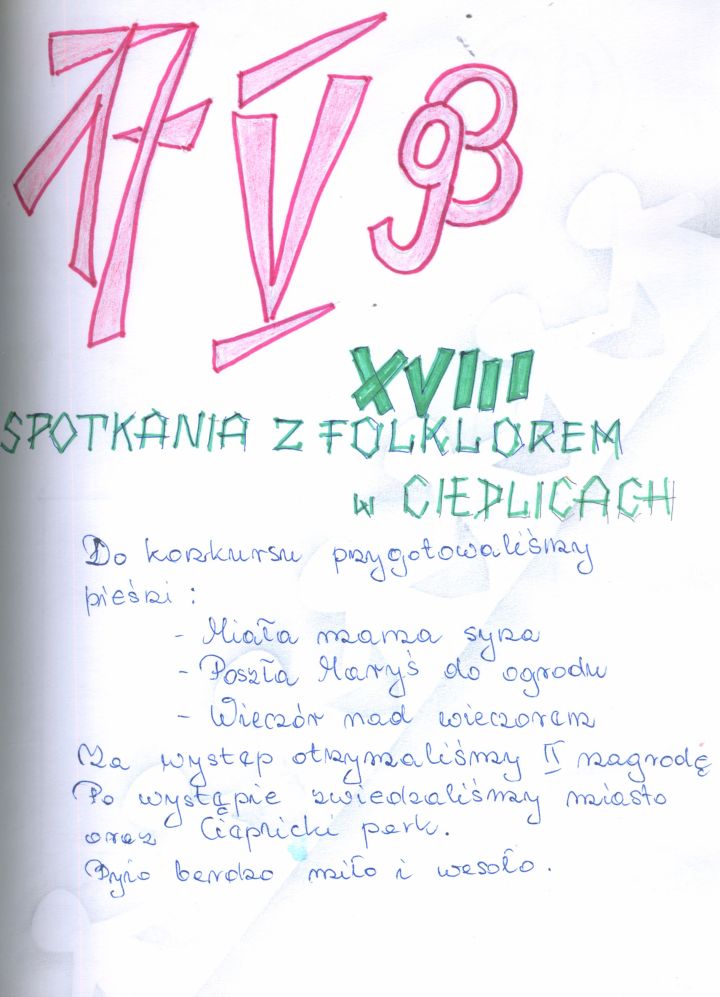 17 V 93
XVIII
SPOTKANIA Z FOLKLOREM
w CIEPLICACH
Do konkursu przygotowaliśmy
pieśni :
- Miała mama syna
- Poszła Maryś do ogrodu
- Wieczór nad wieczorem
Za występ otrzymaliśmy II nagrodę
Po występie zwiedzaliśmy miasto
oraz park.
Było bardzo miło i wesoło.